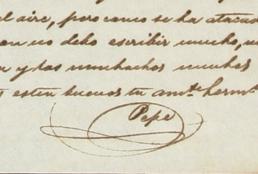 el aire, pero como se ha atacado
no debo escribir mucho,
y las muchachas muchos
esten buenos tu am.te herm.o
Pepe